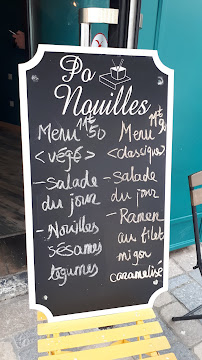 Po
Nouilles
Menu 11€50
<végé>
- Salade
du jour
- Nouilles
sésames
légumes
Menu 11€90
<classique>
- Salade
du jour
- Ramen
au filet
mignon
caramélisé